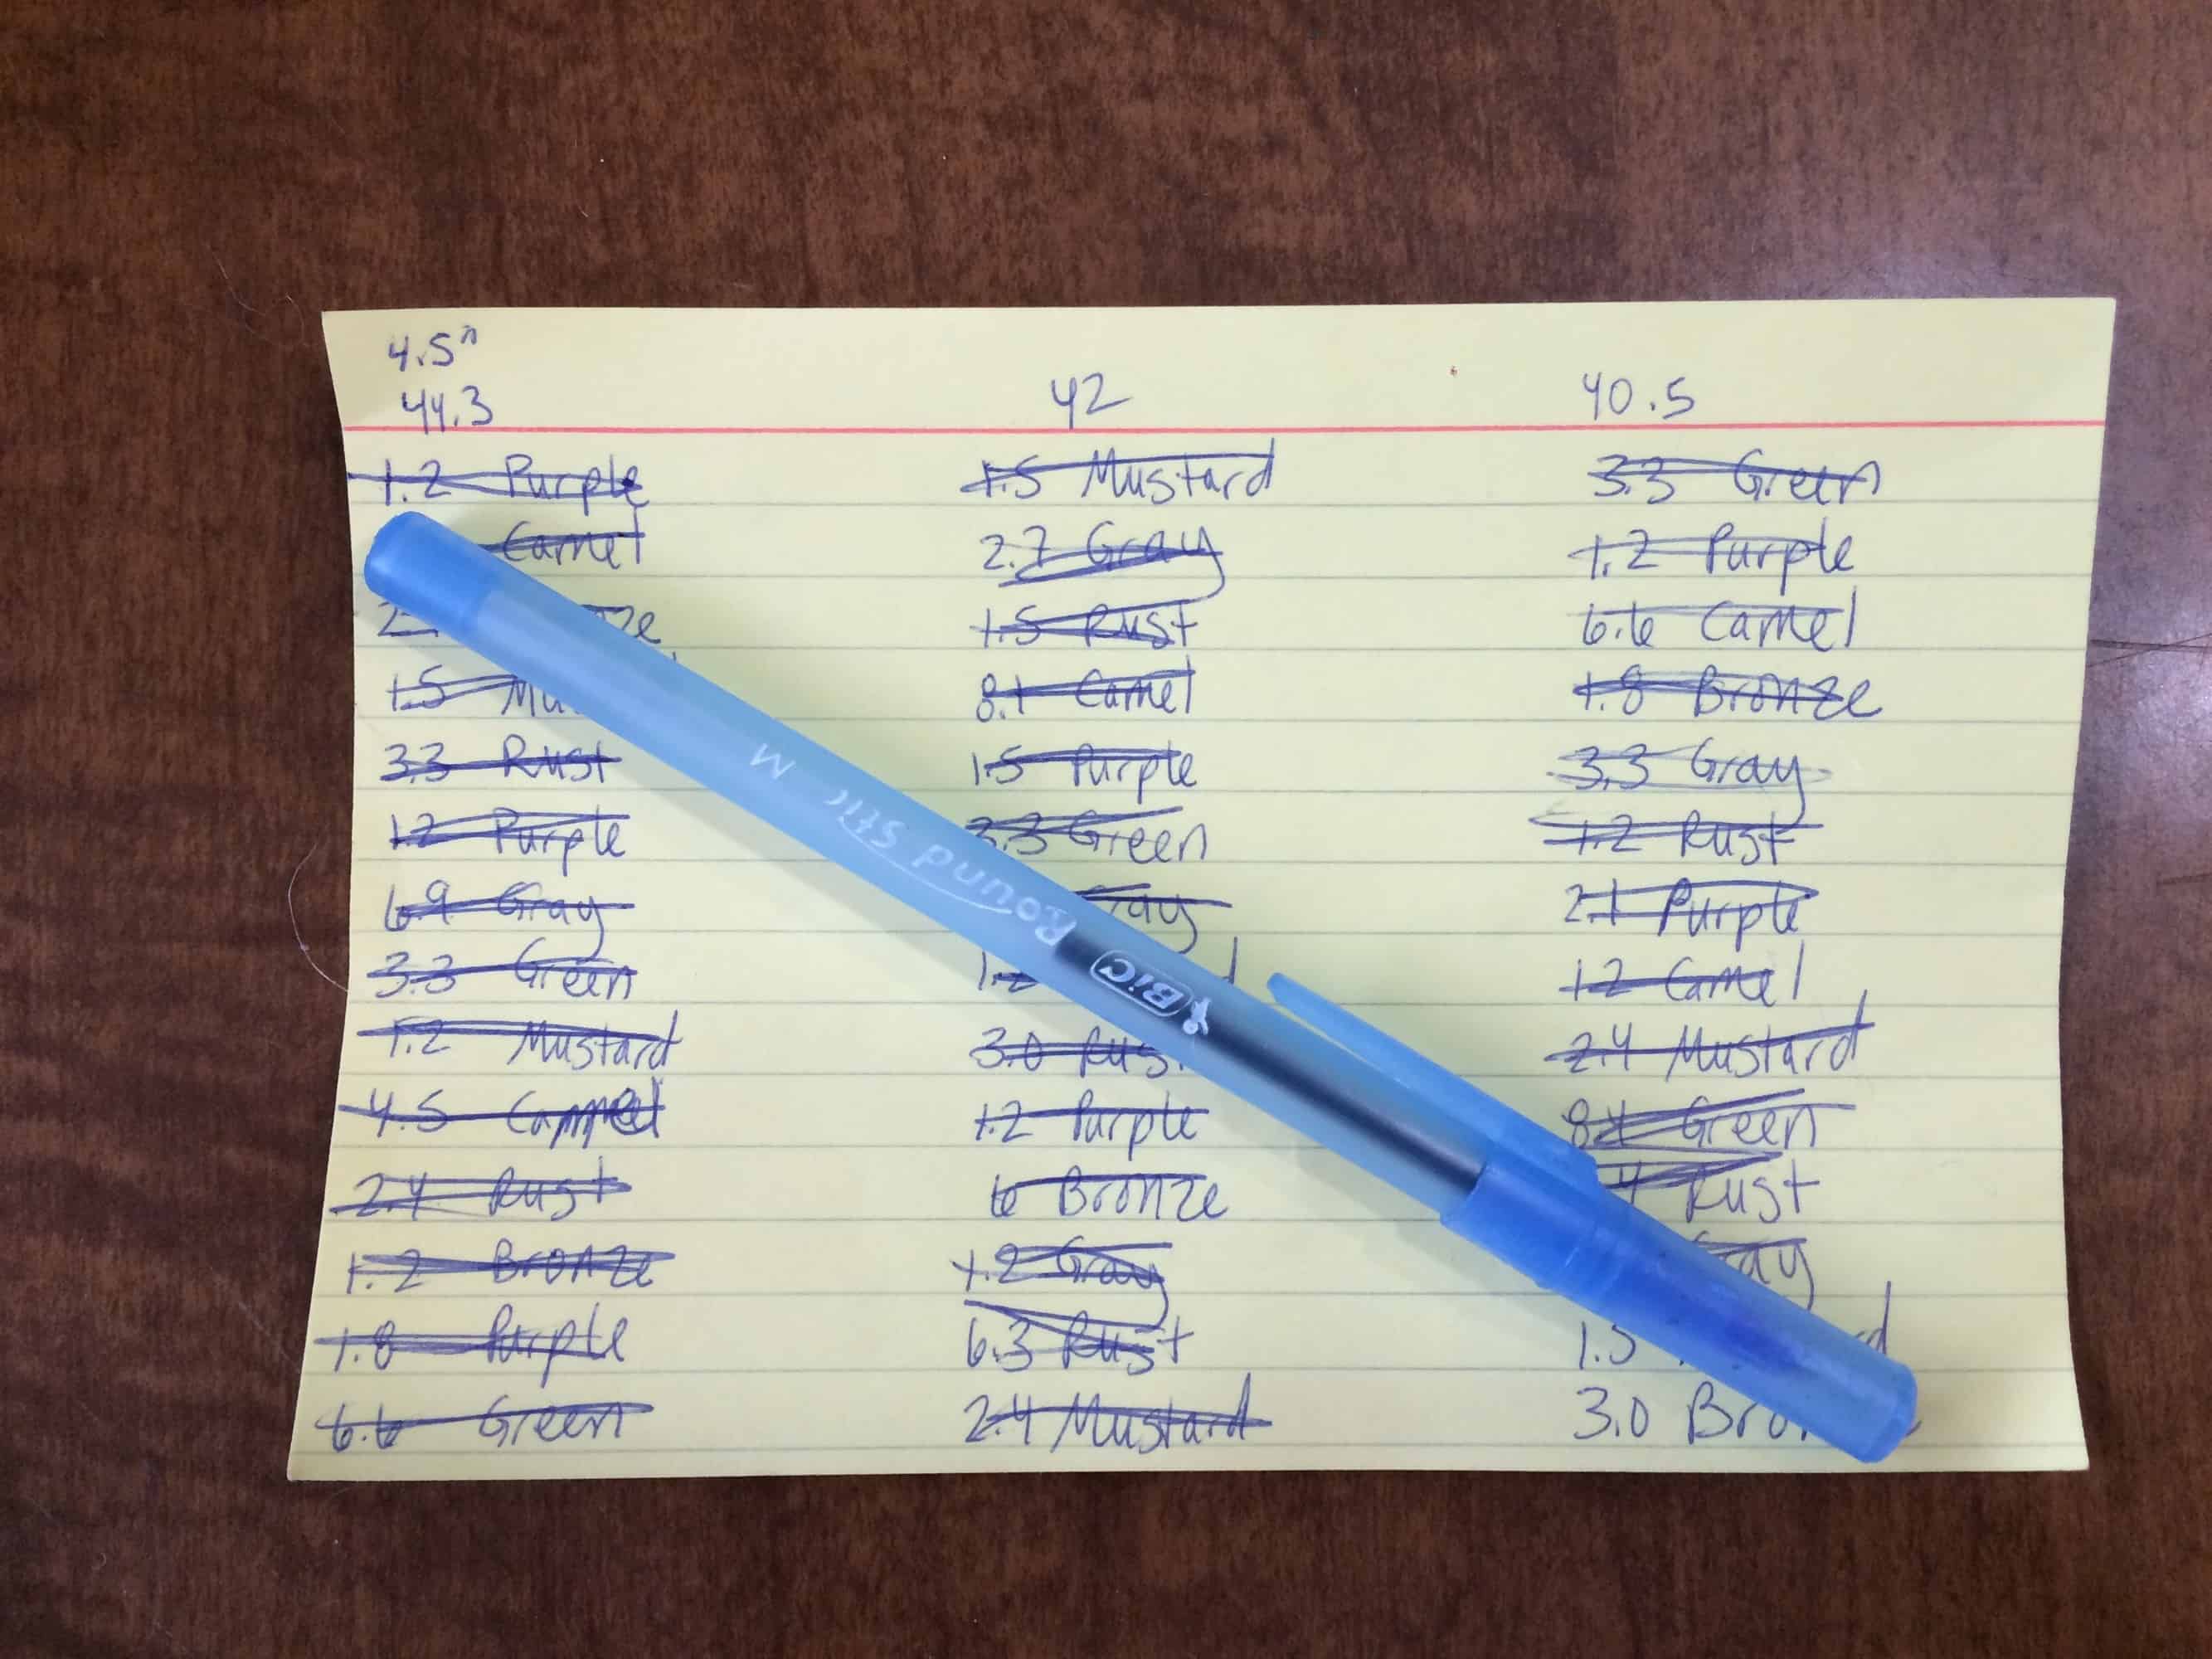 4.5"
44.3
1.2 Purple
Camel
1.5
3.3 Rust
1.2 Purple
6.9 Gray
3.3 Green
1.2 Mustard
4.5 Cammel
2.4 Rust
1.2 Bronze
1.8 Purple
6.6 Green
42
1.5 Mustard
2.7 Gray
1.5 Rust
8.1 Camel
1.5 Purple
3.3 Green
3.0 Rust
1.2 Purple
6 Bronze
1.2 Gray
6.3 Rust
2.4 Mustard
40.5
3.3 Green
1.2 Purple
6.6 Camel
1.8 Bronze
3.3 Gray
1.2 Rust
2.1 Purple
1.2 Camel
2.4 Mustard
Green
Rust
1.5
3.0
BIC Round Stic M